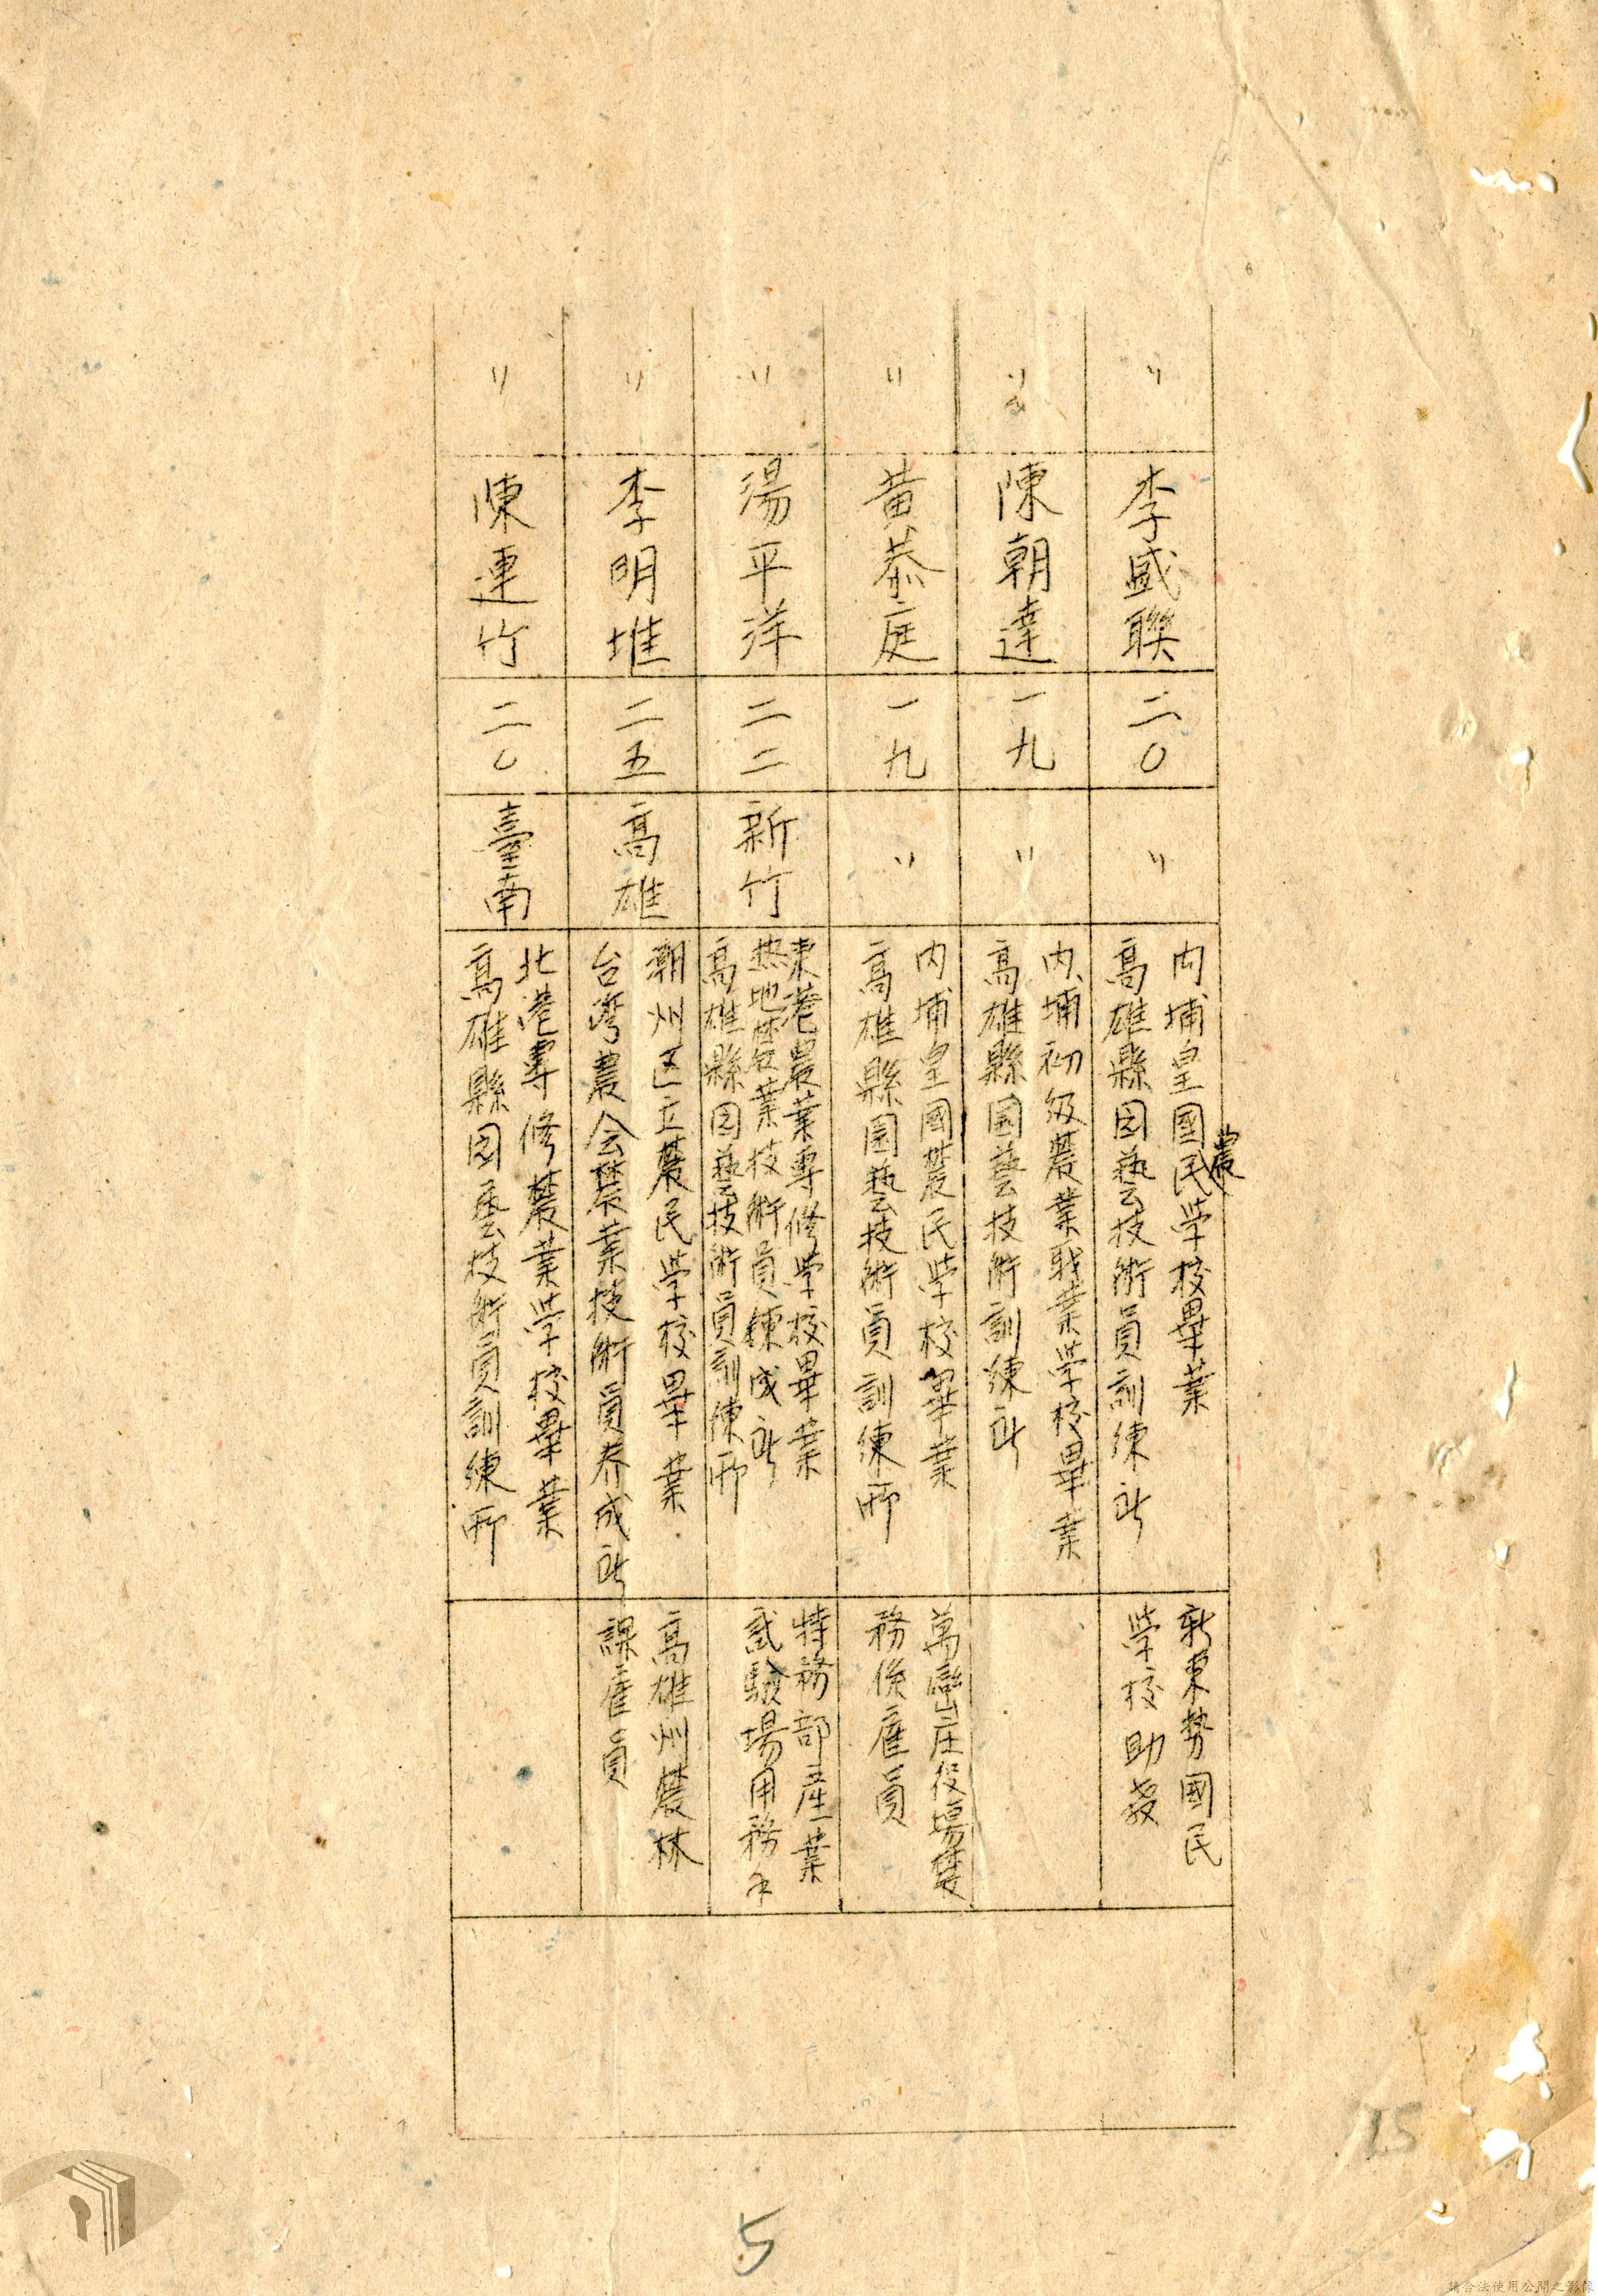 〃
李盛聯
二〇
〃
内埔皇國農民学校畢業
高雄縣园藝技術員訓練所
新東势國民
学校助教
〃
陳朝達
一九
〃
内埔初級農業职業学校畢業
高雄縣园藝技術訓練所
〃
黄恭庭
一九
〃
内埔皇國農民学校畢業
高雄縣園藝技術員訓練所
萬巒庄役場
務係雇員
〃
湯平洋
二二
新竹
東港農業專修学校畢業
热地農業技術員錬成所
高雄縣园藝技術員訓練所
特務部産業
試験場用務
〃
李明堆
二五
高雄
潮州区立農民学校畢業
台湾農会農業技術員养成所
高雄州農林
課雇員
〃
陳連竹
二〇
臺南
北港專修農業学校畢業
高雄縣园藝技術員訓練所
15
5
請合法使用公開之影像